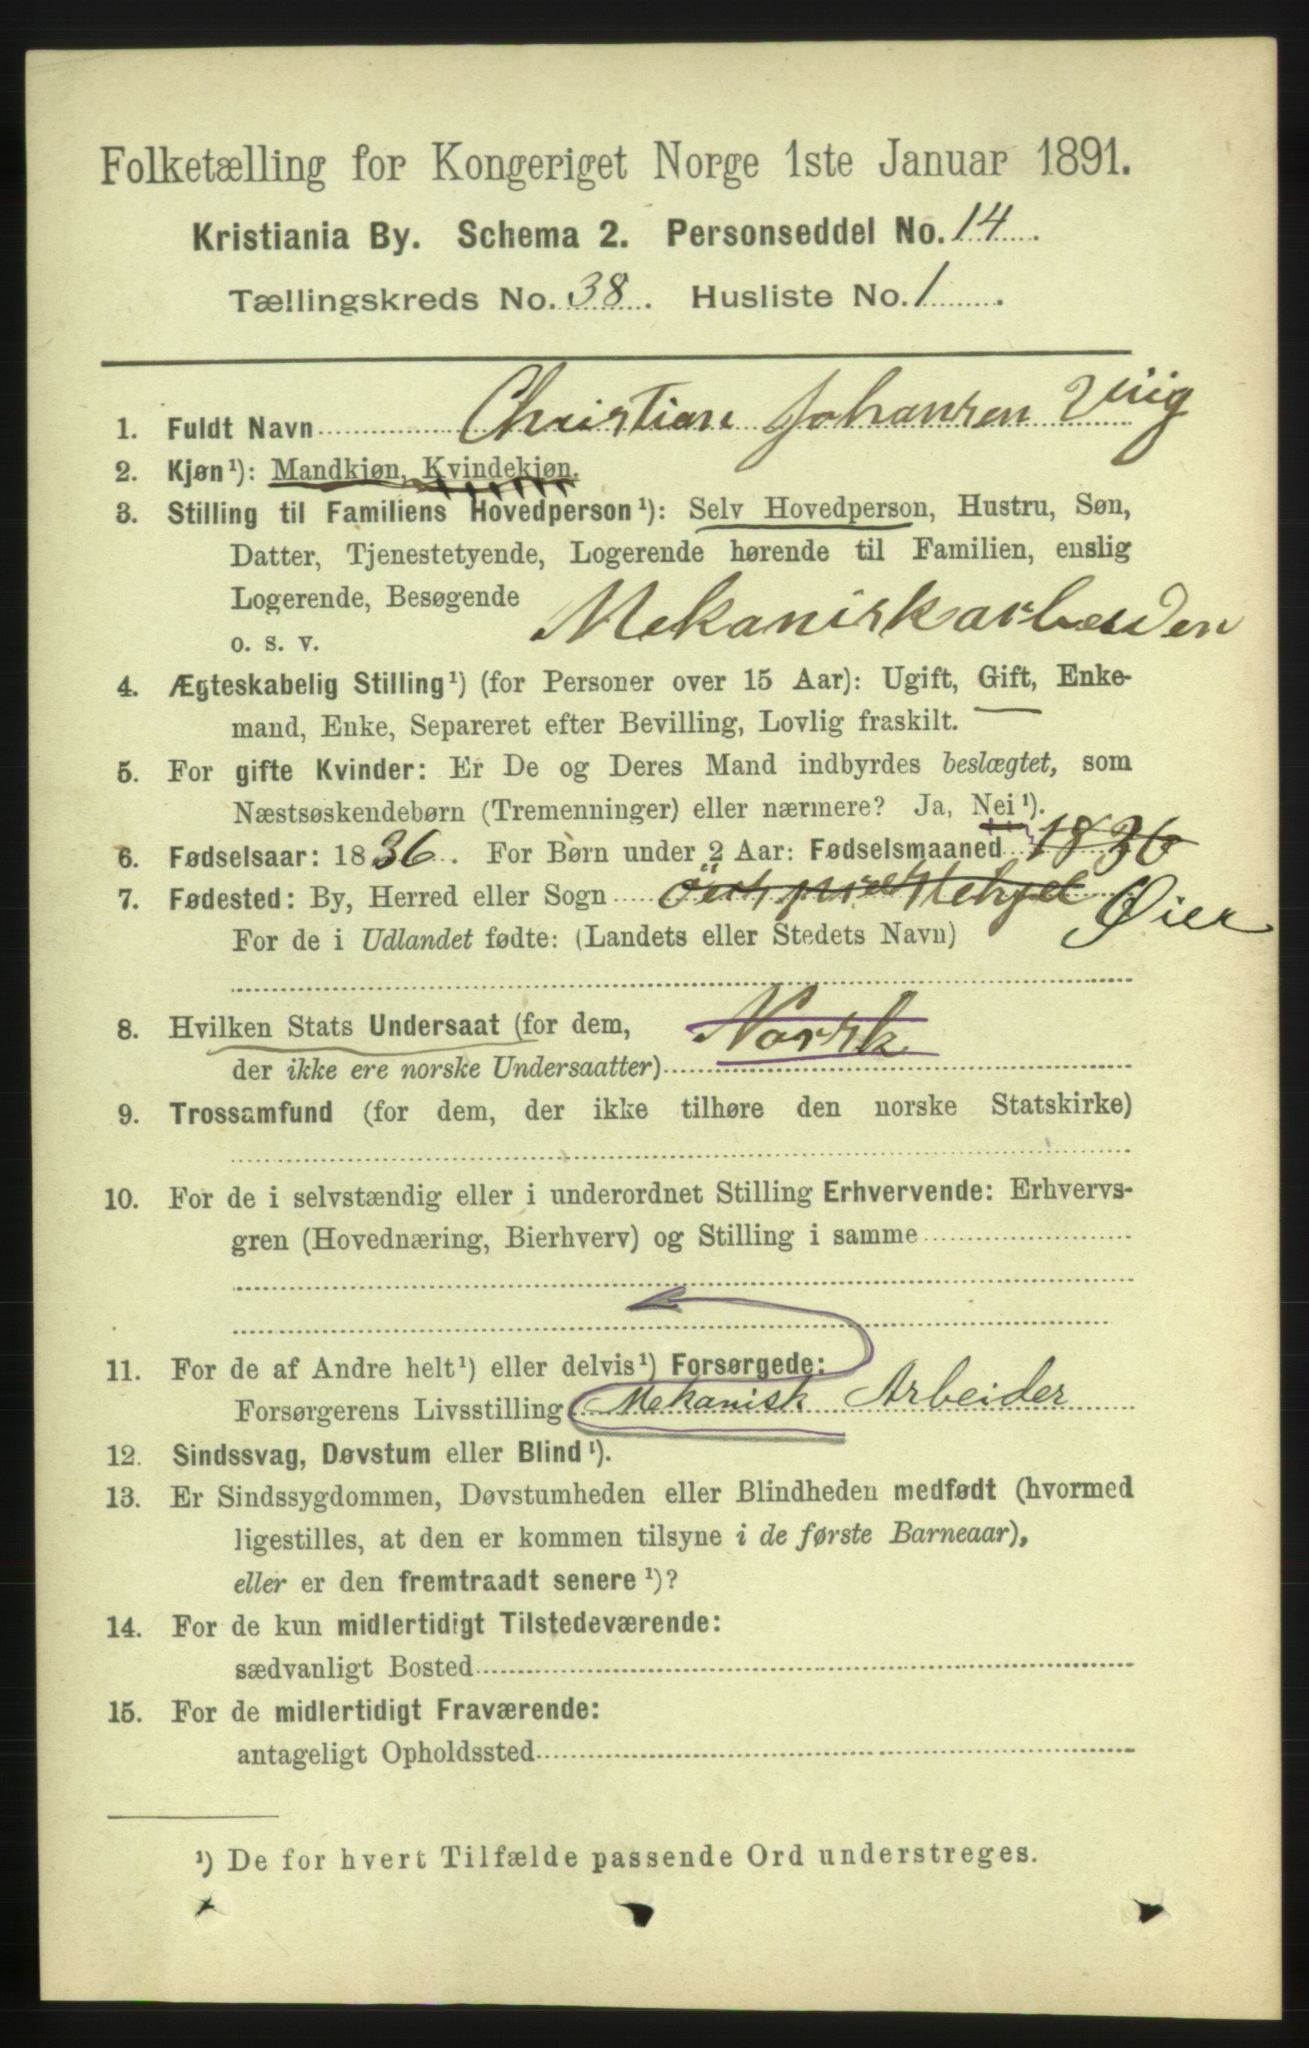 Folketælling for Kongeriget Norge 1ste Januar 1891.
Kristiania By. Schema 2. Personseddel No. 14.
Tællingskreds No. 38. Husliste No. 1.
1. Fuldt Navn Christian Johansen Viig
2. Kjøn¹): Mandkjøn, Kvindekjøn.
3. Stilling til Familiens Hovedperson¹): Selv Hovedperson, Hustru, Søn,
Datter, Tjenestetyende, Logerende hørende til Familien, enslig
Logerende, Besøgende
o. s. v. Mekaniskarbeiden
4. Ægteskabelig Stilling¹) (for Personer over 15 Aar): Ugift, Gift, Enke-
mand, Enke, Separeret efter Bevilling, Lovlig fraskilt.
5. For gifte Kvinder: Er De og Deres Mand indbyrdes beslægtet, som
Næstsøskendebørn (Tremenninger) eller nærmere? Ja, Nei¹).
6. Fødselsaar: 1836. For Børn under 2 Aar: Fødselsmaaned 1836
7. Fødested: By, Herred eller Sogn Øier
For de i Udlandet fødte: (Landets eller Stedets Navn)
8. Hvilken Stats Undersaat (for dem,
der ikke ere norske Undersaatter) Norsk
9. Trossamfund (for dem, der ikke tilhøre den norske Statskirke)
10. For de i selvstændig eller i underordnet Stilling Erhvervende: Erhvervs-
gren (Hovednæring, Bierhverv) og Stilling i samme
11. For de af Andre helt¹) eller delvis¹) Forsørgede:
Forsørgerens Livsstilling Mekanisk Arbeider
12. Sindssvag, Døvstum eller Blind¹).
13. Er Sindssygdommen, Døvstumheden eller Blindheden medfødt (hvormed
ligestilles, at den er kommen tilsyne i de første Barneaar),
eller er den fremtraadt senere¹)?
14. For de kun midlertidigt Tilstedeværende:
sædvanligt Bosted
15. For de midlertidigt Fraværende:
antageligt Opholdssted
¹) De for hvert Tilfælde passende Ord understreges.